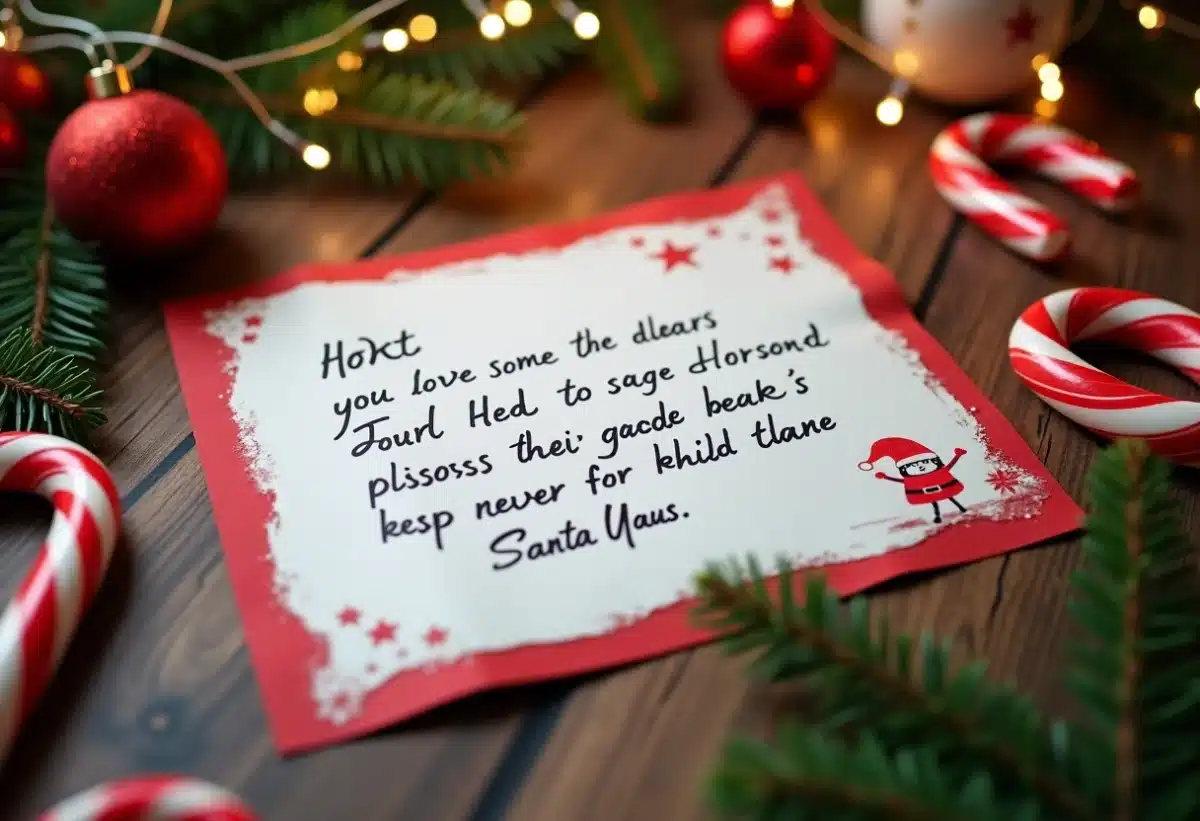 Hokt
you love some the dlears
Jourl Hed to sage Horsond
plisosss thei gacde beak's
kesp never for khild tlane
Santa Yaus.